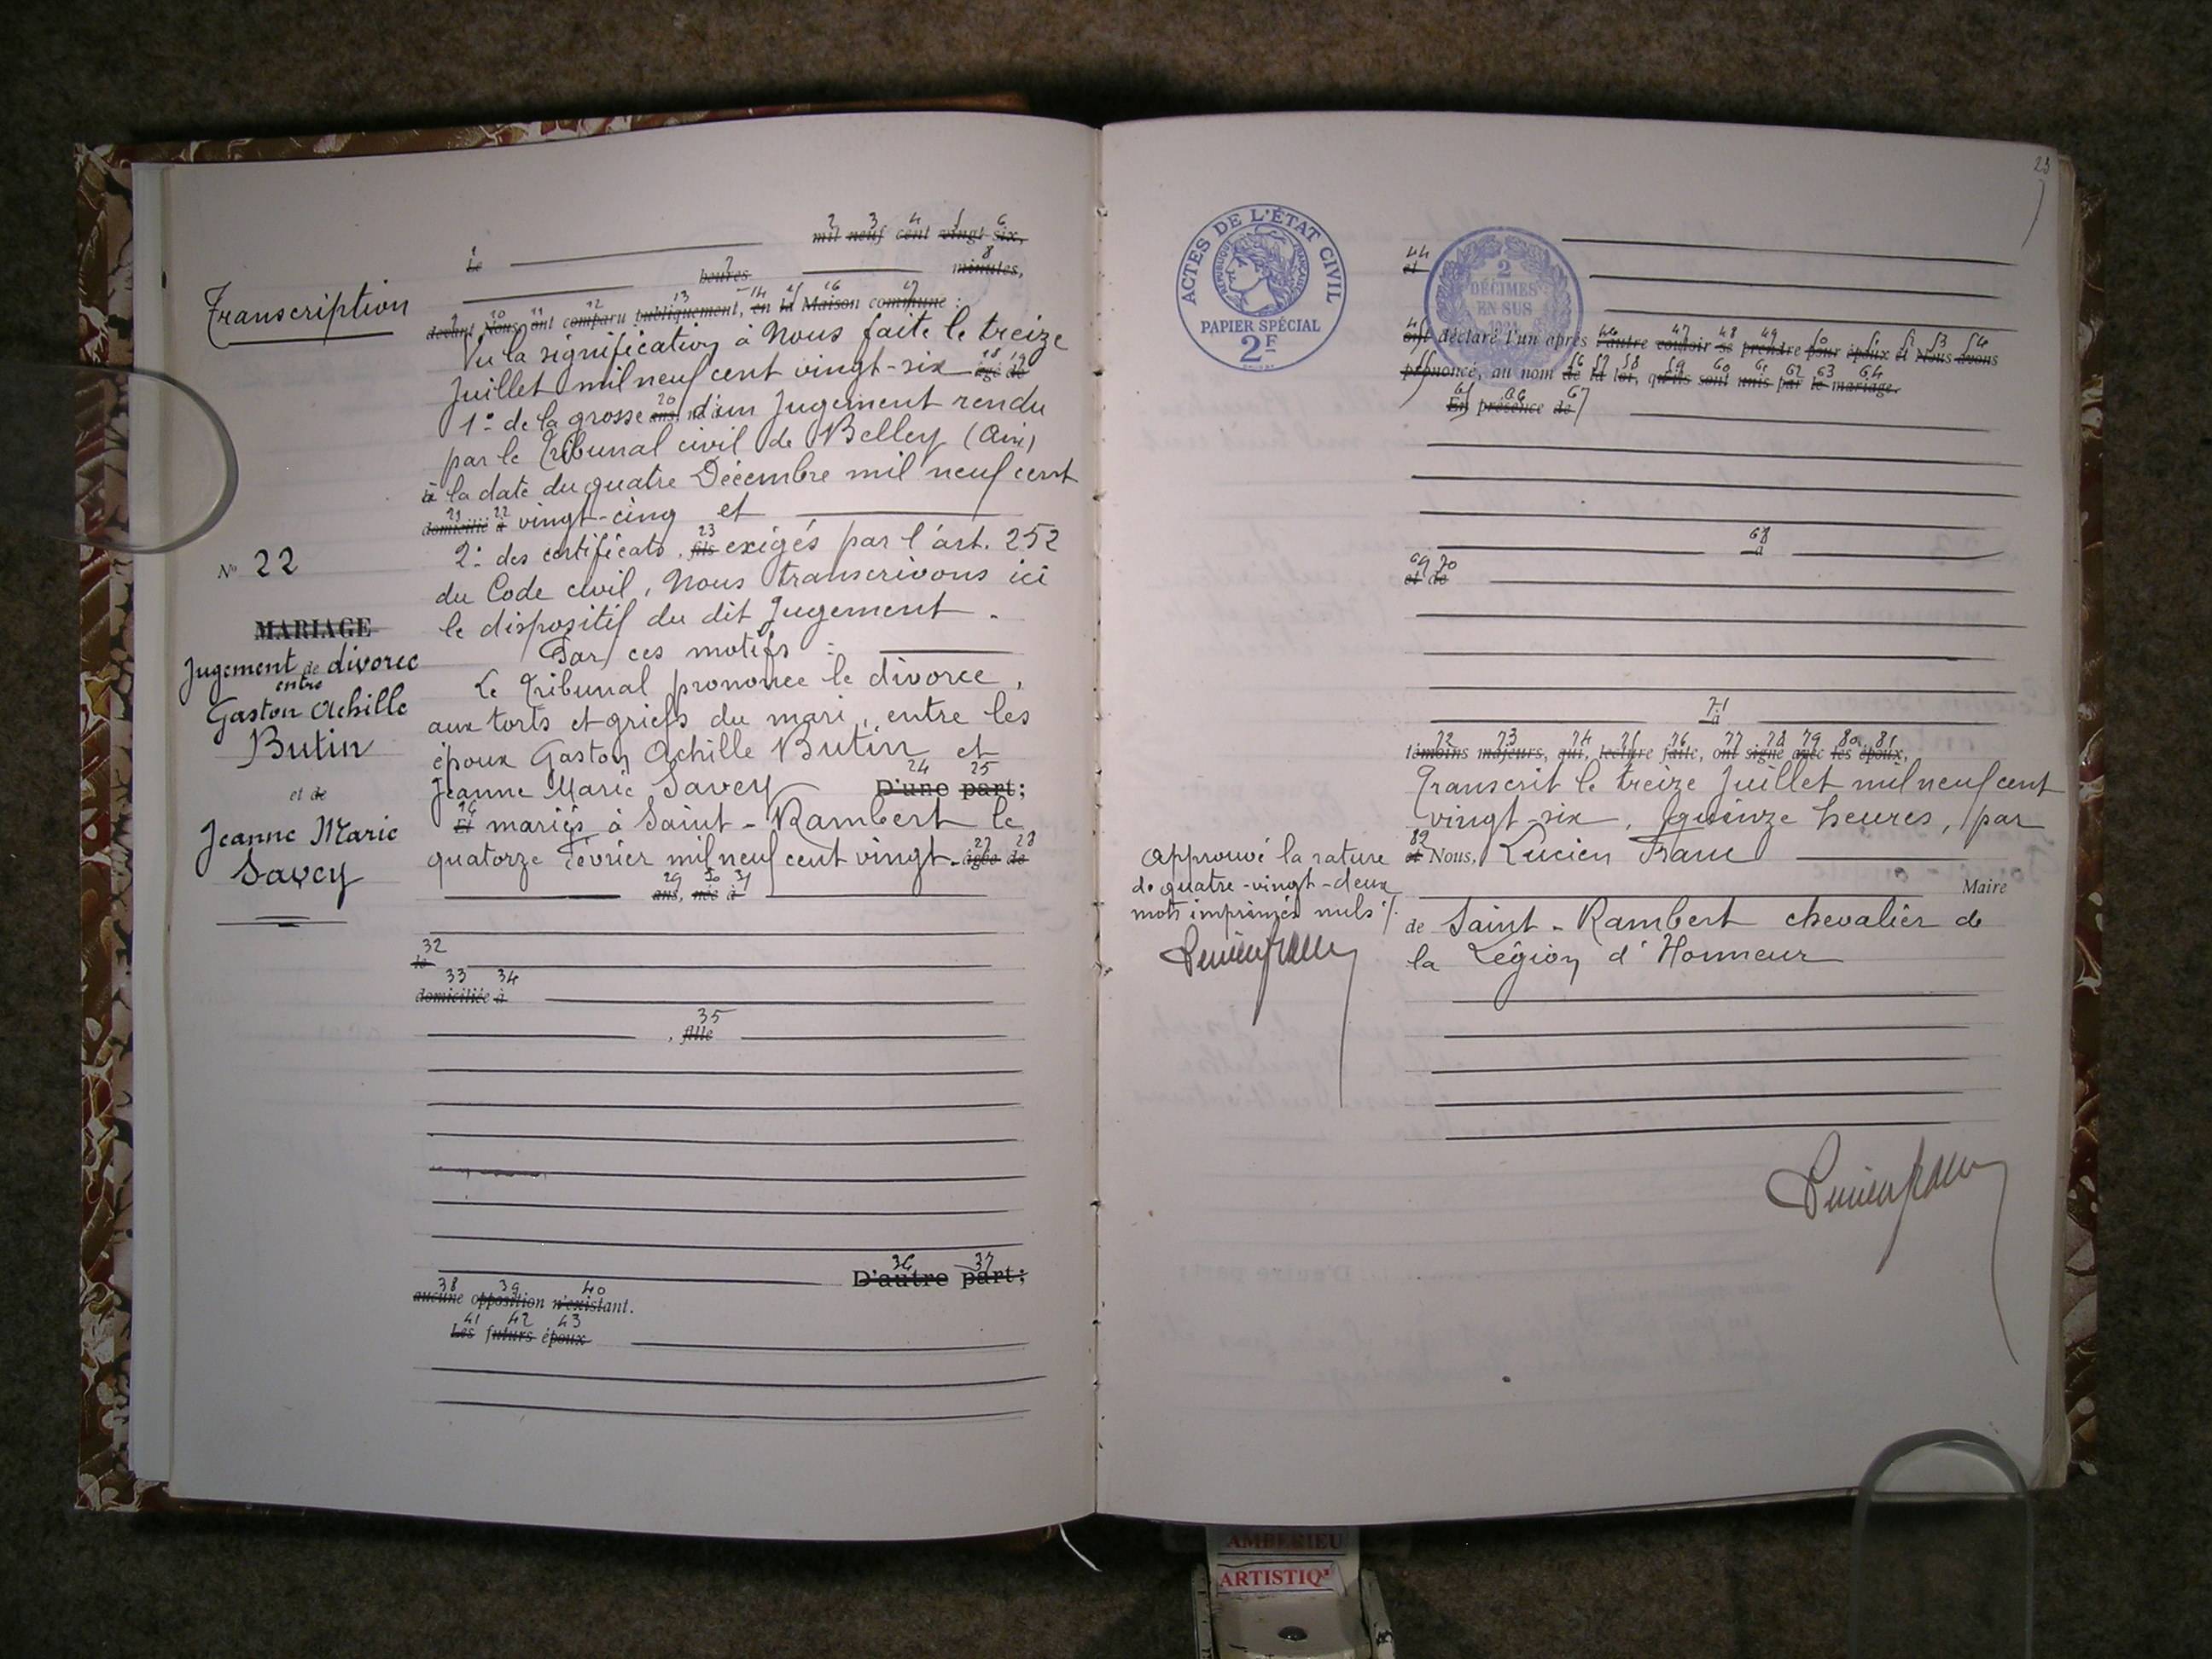 Transcription
N° 22
MARIAGE
Jugement de divorce
entre
Gaston Achille
Butin
et de
Jeanne Marie
Savey
1 2 3 4 5 6
Le mil neuf cent vingt six,
7 8
heures minutes,
9 10 11 12 13 14 15 16 17
devant Nous ont comparu publiquement, en la Maison commune :
Vu la signification à Nous faite le treize
18 19
Juillet mil neuf cent vingt-six âgé de
20
1° de la grosse ans, né à d'un Jugement rendu
par le Tribunal civil de Belley (Ain)
à la date du quatre Décembre mil neuf cent
21 22
domicilié à vingt-cinq et
23
2° des certificats, fils exigés par l'art. 252
du Code civil, Nous transcrivons ici
le dispositif du dit Jugement.
Par ces motifs :
Le Tribunal prononce le divorce,
aux torts et griefs du mari, entre les
époux Gaston Achille Butin et
24 25
Jeanne Marie Savey D'une part;
26
Et mariés à Saint-Rambert le
27 28
quatorze Février mil neuf cent vingt. âgée de
29 30 31
ans, née à
32
le
33 34
domiciliée à
35
, fille
36 37
D'autre part;
38 39 40
aucune opposition n'existant.
41 42 43
Les futurs époux
23
ACTES DE L'ÉTAT CIVIL
RÉPUBLIQUE FRANÇAISE
PAPIER SPÉCIAL
2F
2
DÉCIMES
EN SUS
44
et
45 46 47 48 49 50 51 52 53 54
ont déclaré l'un après l'autre vouloir se prendre pour époux et Nous avons
55 56 57 58 59 60 61 62 63 64
prononcé, au nom de la loi, qu'ils sont unis par le mariage.
65 66 67
En présence de
68
à
69 70
et de
71
à
72 73 74 75 76 77 78 79 80 81
témoins majeurs, qui, lecture faite, ont signé avec les époux,
Transcrit le treize Juillet mil neuf cent
vingt-six, quinze heures, par
82
et Nous, Lucien Franc
Maire
de Saint-Rambert chevalier de
la Légion d'Honneur
Approuvé la rature
de quatre-vingt-deux
mots imprimés nuls
Lucien Franc
Lucien Franc
AMBERIEU
ARTISTIQ